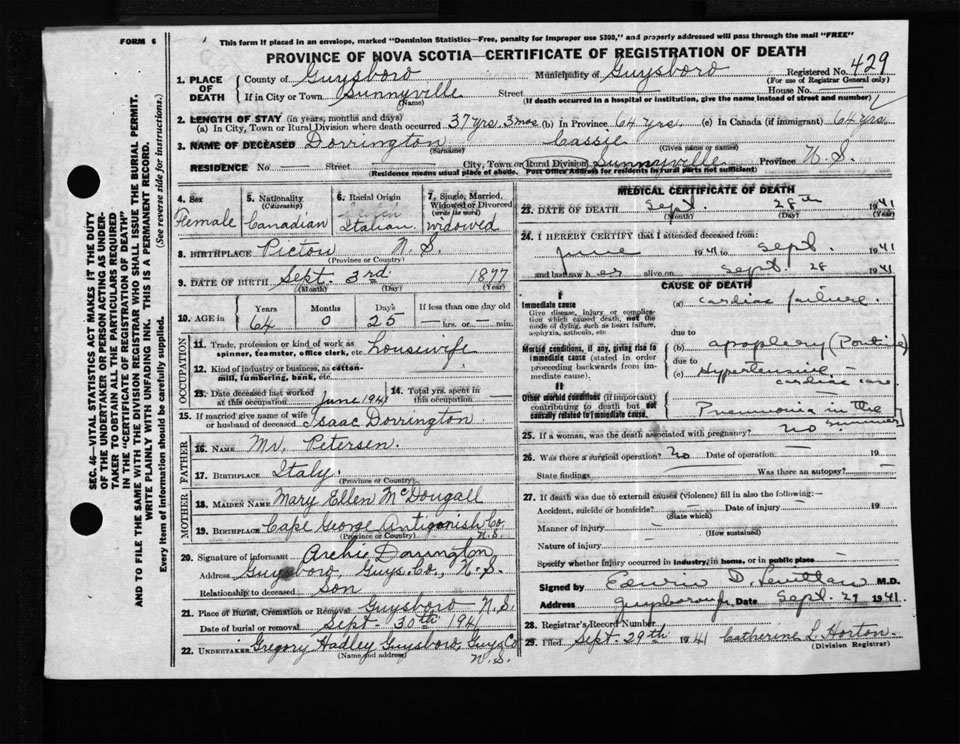 FORM 6
This form if placed in an envelope, marked "Dominion Statistics—Free, penalty for improper use $300," and properly addressed will pass through the mail "FREE"
PROVINCE OF NOVA SCOTIA—CERTIFICATE OF REGISTRATION OF DEATH
1. PLACE OF DEATH County of Guysboro Municipality of Guysboro Registered No. 429
(For use of Registrar General only)
If in City or Town Sunnyville Street House No.
(Name) (If death occurred in a hospital or institution, give the name instead of street and number)
2. LENGTH OF STAY (in years, months and days)
(a) In City, Town or Rural Division where death occurred 37 yrs. 3 mos (b) In Province 64 yrs. (c) In Canada (if immigrant) 64 yrs.
3. NAME OF DECEASED Dorrington Cassie
(Surname) (Given name or names)
RESIDENCE No. Street City, Town or Rural Division Sunnyville Province N.S.
(Residence means usual place of abode. Post Office Address for residents in rural parts not sufficient)
4. Sex Female
5. Nationality (Citizenship) Canadian
6. Racial Origin Italian
7. Single, Married, Widowed or Divorced (write the word) widowed
8. BIRTHPLACE Pictou N.S.
(Province or Country)
9. DATE OF BIRTH Sept. 3rd 1877
(Month) (Day) (Year)
10. AGE in Years Months Days If less than one day old
64 0 25 — hrs. or — min.
OCCUPATION
11. Trade, profession or kind of work as spinner, teamster, office clerk, etc. housewife
12. Kind of industry or business, as cotton-mill, lumbering, bank, etc.
13. Date deceased last worked at this occupation June 1941
14. Total yrs. spent in this occupation —
15. If married give name of wife or husband of deceased Isaac Dorrington
FATHER
16. NAME Mr. Petersen.
17. BIRTHPLACE Italy.
(Province or Country)
MOTHER
18. MAIDEN NAME Mary Ellen McDougall
19. BIRTHPLACE Cape George Antigonish Co. N.S.
(Province or Country)
20. Signature of informant Archie Dorrington
Address Guysboro, Guys. Co., N.S.
Relationship to deceased son
21. Place of Burial, Cremation or Removal Guysboro N.S.
Date of burial or removal Sept. 30th 1941
22. UNDERTAKER Gregory Hadley Guysboro, Guys Co N.S.
(Name and address)
MEDICAL CERTIFICATE OF DEATH
23. DATE OF DEATH Sept. 28th 1941
(Month) (Day) (Year)
24. I HEREBY CERTIFY that I attended deceased from:
June 1941 to Sept. 1941
and last saw her alive on Sept. 28 1941
CAUSE OF DEATH
I
Immediate cause
Give disease, injury or complication which caused death, not the mode of dying, such as heart failure, asphyxia, asthenia, etc
(a) cardiac failure.
due to
Morbid conditions, if any, giving rise to immediate cause (stated in order proceeding backwards from immediate cause).
(b) apoplexy (Pontine)
due to
(c) Hypertensive — cardiac case
II
Other morbid conditions (if important) contributing to death but not causally related to immediate cause.
Pneumonia in the summer
25. If a woman, was the death associated with pregnancy? no
26. Was there a surgical operation? no Date of operation — 19
State findings Was there an autopsy? —
27. If death was due to external causes (violence) fill in also the following:—
Accident, suicide or homicide? — Date of injury — 19
(State which)
Manner of injury —
(How sustained)
Nature of injury —
Specify whether injury occurred in industry, in home, or in public place
Signed by Edwin D. M.D.
Address Date Sept. 29 1941.
28. Registrar's Record Number
29. Filed Sept. 29th 1941 Catherine L. Horton.
(Division Registrar)
SEC. 46—VITAL STATISTICS ACT MAKES IT THE DUTY
OF THE UNDERTAKER OR PERSON ACTING AS UNDER-
TAKER TO OBTAIN ALL THE PARTICULARS REQUIRED
IN THE "CERTIFICATE OF REGISTRATION OF DEATH"
AND TO FILE THE SAME WITH THE DIVISION REGISTRAR WHO SHALL ISSUE THE BURIAL PERMIT.
WRITE PLAINLY WITH UNFADING INK. THIS IS A PERMANENT RECORD.
Every item of information should be carefully supplied. (See reverse side for instructions.)